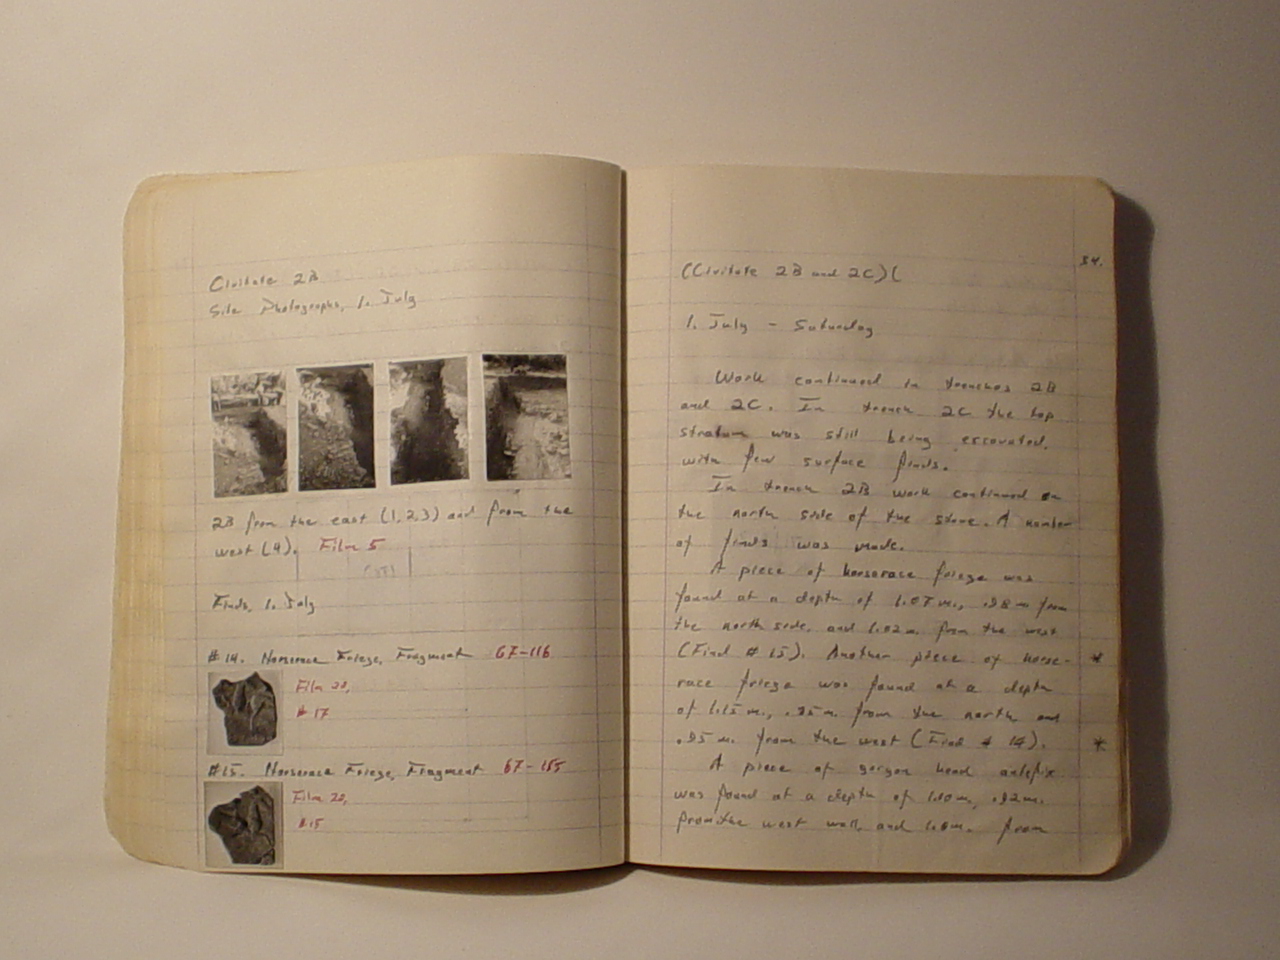 Civitate 2B
Site Photographs, 1. July
2B from the east (1,2,3) and from the
west (4). Film 5
Finds, 1. July
#14. Horserace Frieze, Fragment 67-116
Film 20,
#17
#15. Horserace Frieze, Fragment 67-155
Film 20,
#15
34.
(Civitate 2B and 2C)(
1. July - Saturday
Work continued in trenches 2B
and 2C. In trench 2C the top
stratum was still being excavated.
with few surface finds.
In trench 2B work continued on
the north side of the stone. A number
of finds was made.
A piece of horserace frieze was
found at a depth of 1.07 m., .98 m from
the north side, and 1.02 m. from the west
(Find # 15). Another piece of horse- *
race frieze was found at a depth
of 1.15 m., .85 m. from the north and
.95 m. from the west (Find # 14). *
A piece of gorgon head antefix
was found at a depth of 1.10 m., .92 m.
from the west wall, and 1.6 m. from